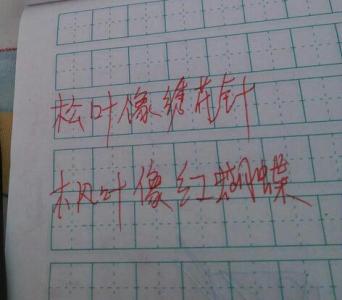 松叶像绣花针
枫叶像红蝴蝶